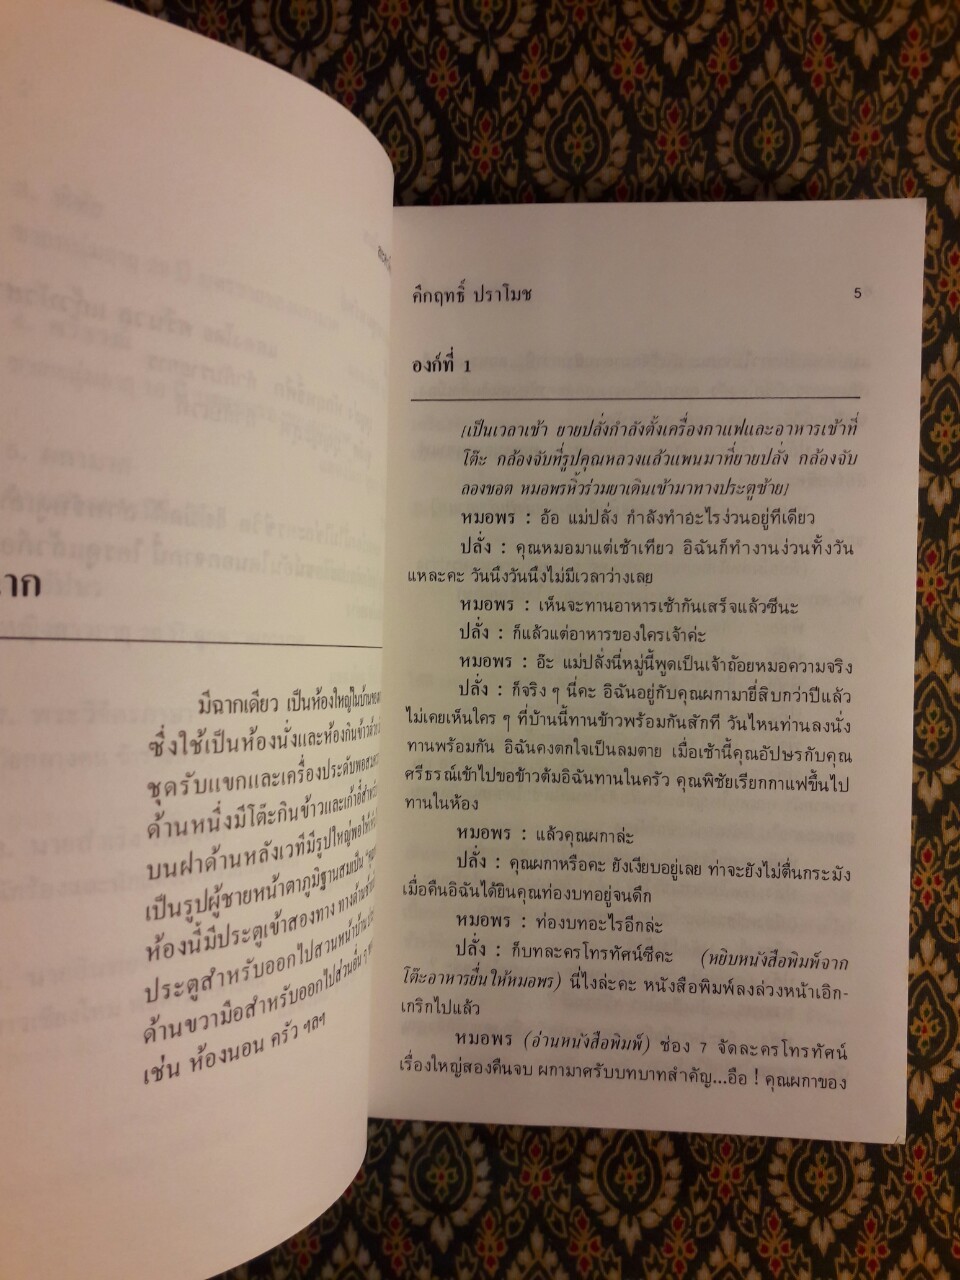 าก
มีฉากเดียว เป็นห้องใหญ่ในบ้านของ
ซึ่งใช้เป็นห้องนั่งและห้องกินข้าวด้วย
ชุดรับแขกและเครื่องประดับพอสมควร
ด้านหนึ่งมีโต๊ะกินข้าวและเก้าอี้สำหรับ
บนฝาด้านหลังเวทีมีรูปใหญ่พอใช้
เป็นรูปผู้ชายหน้าตาภูมิฐานสมเป็น
ห้องนี้มีประตูเข้าสองทาง ทางด้านซ้าย
ประตูสำหรับออกไปสวนหน้าบ้าน
ด้านขวามือสำหรับออกไปส่วนอื่น ๆ
เช่น ห้องนอน ครัว ฯลฯ
คึกฤทธิ์ ปราโมช 5
องก์ที่ 1
[เป็นเวลาเช้า ยายปลั่งกำลังตั้งเครื่องกาแฟและอาหารเช้าที่
โต๊ะ กล้องจับที่รูปคุณหลวงแล้วแพนมาที่ยายปลั่ง กล้องจับ
ลองชอต หมอพรหิ้วร่วมยาเดินเข้ามาทางประตูซ้าย]
หมอพร : อ้อ แม่ปลั่ง กำลังทำอะไรง่วนอยู่ทีเดียว
ปลั่ง : คุณหมอมาแต่เช้าเทียว อิฉันก็ทำงานง่วนทั้งวัน
แหละคะ วันนึงวันนึงไม่มีเวลาว่างเลย
หมอพร : เห็นจะทานอาหารเช้ากันเสร็จแล้วซีนะ
ปลั่ง : ก็แล้วแต่อาหารของใครเจ้าค่ะ
หมอพร : อ๊ะ แม่ปลั่งนี่หมู่นี้พูดเป็นเจ้าถ้อยหมอความจริง
ปลั่ง : ก็จริง ๆ นี่คะ อิฉันอยู่กับคุณผกามายี่สิบกว่าปีแล้ว
ไม่เคยเห็นใคร ๆ ที่บ้านนี้ทานข้าวพร้อมกันสักที วันไหนท่านลงนั่ง
ทานพร้อมกัน อิฉันคงตกใจเป็นลมตาย เมื่อเช้านี้คุณอัปษรกับคุณ
ศรีธรณ์เข้าไปขอข้าวต้มอิฉันทานในครัว คุณพิชัยเรียกกาแฟขึ้นไป
ทานในห้อง
หมอพร : แล้วคุณผกาล่ะ
ปลั่ง : คุณผกาหรือคะ ยังเงียบอยู่เลย ท่าจะยังไม่ตื่นกระมัง
เมื่อคืนอิฉันได้ยินคุณท่องบทอยู่จนดึก
หมอพร : ท่องบทอะไรอีกล่ะ
ปลั่ง : ก็บทละครโทรทัศน์ซีคะ (หยิบหนังสือพิมพ์จาก
โต๊ะอาหารยื่นให้หมอพร) นี่ไงล่ะคะ หนังสือพิมพ์ลงล่วงหน้าเอิก-
เกริกไปแล้ว
หมอพร (อ่านหนังสือพิมพ์) ช่อง 7 จัดละครโทรทัศน์
เรื่องใหญ่สองคืนจบ ผกามาศรับบทบาทสำคัญ...อือ ! คุณผกาของ